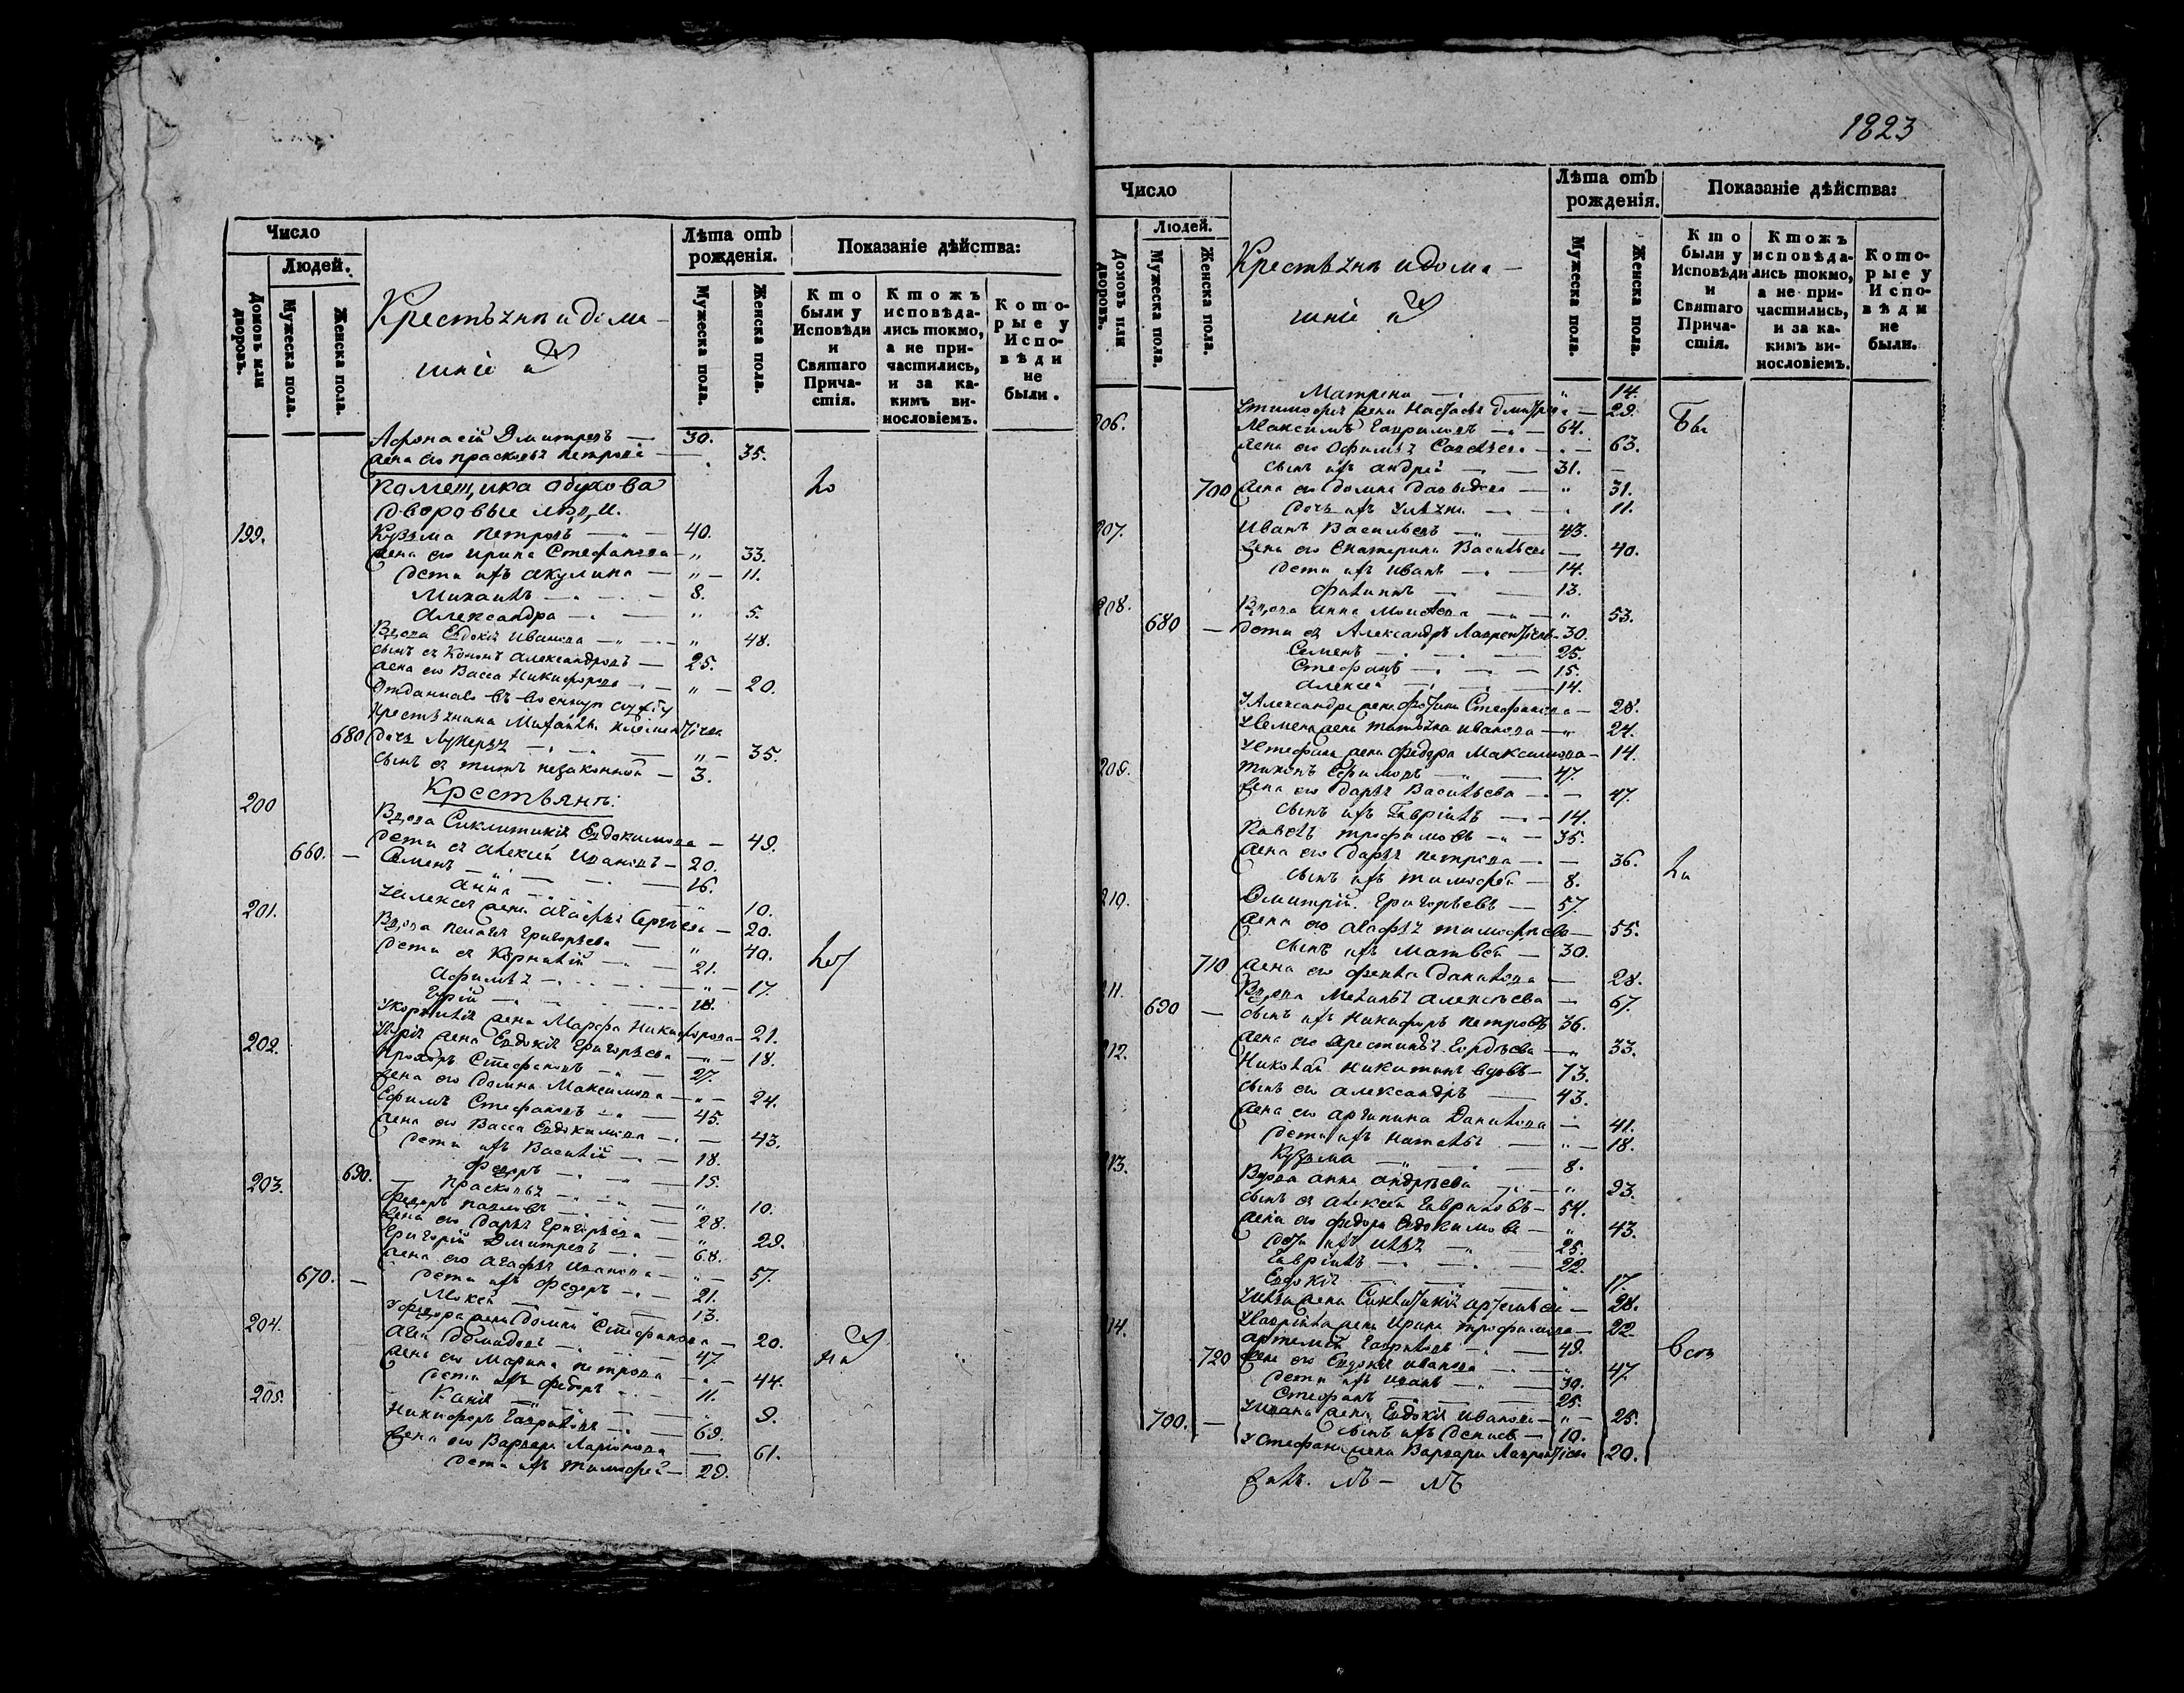 Число
Людей.
Домовъ или дворовъ.
Мужеска пола.
Женска пола.
Крестьянѣ и дома-
шніе ихъ
Лѣта отъ
рожденія.
Мужеска пола.
Женска пола.
Показаніе дѣйства:
Кто
были у
Исповѣди
и
Святаго
Прича-
стія.
Ктожъ
исповѣда-
лись токмо,
а не при-
частились,
и за ка-
кимъ ви-
нословіемъ.
Кото-
рые у
Испо-
вѣди
не
были.
Афонасій Дмитревъ — 30.
жена его Прасковья Петрова — 35.
Помещика Обухова
дворовые люди.
199. Кузьма Петровъ — 40.
жена его Ирина Стефанова — " 33.
дети ихъ Акулина — " — 11.
Михаилъ — 8.
Александра — " 5.
Вдова Евдокія Иванова — " 48.
сынъ ея Кононъ Александровъ — 25.
жена его Васса Никифорова — " — 20.
Отданнаго въ военную службу
крестьянина Михаила Климентіева
680 дочь Лукерья — " — 35.
сынъ ея Титъ незаконной — 3.
Крестьянѣ:
200 Вдова Сиклитикія Евдокимова — 49.
660. — дети ея Алексий Ивановъ — 20.
Семенъ — 16.
Анна — 10.
У Алексея жена Агафья Сергѣева — 20.
201. Вдова Пелагея Григорьева — " 40.
дети ея Корнилій — 21.
Афимья — " — 17.
Гурій — 18.
У Корнилія жена Марфа Никифорова — 21.
У Гурія жена Евдокія Григорьева — " — 18.
202. Прохоръ Стефановъ — 27.
жена его Домна Максимова — " — 24.
Ефимъ Стефановъ — 45.
жена его Васса Евдокимова — 43.
дети ихъ Василій — 18.
Федоръ — 15.
690. Прасковья — " 10.
203. Федоръ Павловъ — 28.
жена его Дарья Григорьева — " 29.
Григорій Дмитревъ — 68.
жена его Агафья Иванова — " — 57.
670. — дети ихъ Федоръ — 21.
Мокей — 13.
У Федора жена Домна Стефанова — 20.
204. 47.
жена его Марина Петрова — " — 44.
дети ихъ Федоръ — 11.
9.
205. Никифоръ Гавриловъ — 69.
жена его Варвара Ларіонова — 61.
дети ихъ Тимофей — 29.
1823
Число
Людей.
Домовъ или дворовъ.
Мужеска пола.
Женска пола.
Крестьянѣ и дома-
шніе ихъ
Лѣта отъ
рожденія.
Мужеска пола.
Женска пола.
Показаніе дѣйства:
Кто
были у
Исповѣди
и
Святаго
Прича-
стія.
Ктожъ
исповѣда-
лись токмо,
а не при-
частились,
и за ка-
кимъ ви-
нословіемъ.
Кото-
рые у
Испо-
вѣди
не
были.
Матрена — " 14.
У Тимофея жена Настасья Дмитрева — 29.
206. Максимъ Гавриловъ — 64. Бы
жена его Афимья Савельева — 63.
сынъ ихъ Андрей — 31. —
700 жена его Домна Давыдова — " 31.
дочь ихъ Ульяна — 11.
207. Иванъ Васильевъ — 43.
жена его Екатерина Васильева — 40.
дети ихъ Иванъ — 14.
Филипъ — 13.
208. Вдова Анна Моисеева — " 53.
680 — дети ея Александръ Лаврентіевъ — 30.
Семенъ — 25.
Стефанъ — 15.
Алексей — 14.
У Александра жена Фотинья Стефанова — 28.
У Семена жена Татьяна Иванова — " 24.
У Стефана жена Федора Максимова — 14.
209. Тихонъ Ефимовъ — 47.
жена его Дарья Васильева — 47.
сынъ ихъ Гавріилъ — 14.
Павелъ Трофимовъ — 35.
жена его Дарья Петрова — 36.
сынъ ихъ Тимофей — 8.
210. Дмитрій Григорьевъ — 57.
жена его Агафья Тимофеева — 55.
сынъ ихъ Матвей — 30.
710 жена его Фекла Данилова — 28.
211. Вдова Меланья Алексѣева — 67.
690 — сынъ ихъ Никифоръ Петровъ 36.
жена его Хрестинья Гордѣева — " 33.
212. Николай Никитинъ вдовъ — 73.
сынъ его Александръ — 43.
жена его Аграпина Данилова — 41.
дети ихъ Наталья — " — 18.
Кузьма — 8.
213. Вдова Анна Андрѣева — "
сынъ ея Алексей Гавриловъ — 54.
жена его Федора Евдокимова — " 43.
дети ихъ Илья — 25.
Гавріилъ — 22.
Евдокія — 17.
У Ильи жена Сиклитикія Артемьева — 28.
У Гавріила жена Ирина Трофимова — 22.
214. Артемій Гавриловъ — 49. всѣ
720 жена его Евдокія Иванова — 47.
дети ихъ Иванъ — 30.
Стефанъ — 25.
У Ивана жена Евдокія Иванова — " — 25.
700. — сынъ ихъ Денисъ — 10.
У Стефана жена Варвара Лаврентіева 20.